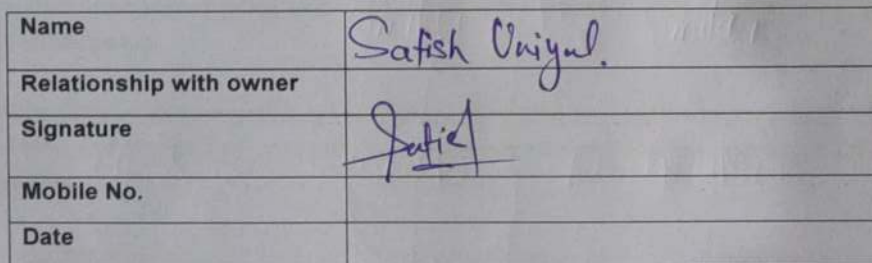 Name Satish Uniyal.
Relationship with owner
Signature Satish
Mobile No.
Date